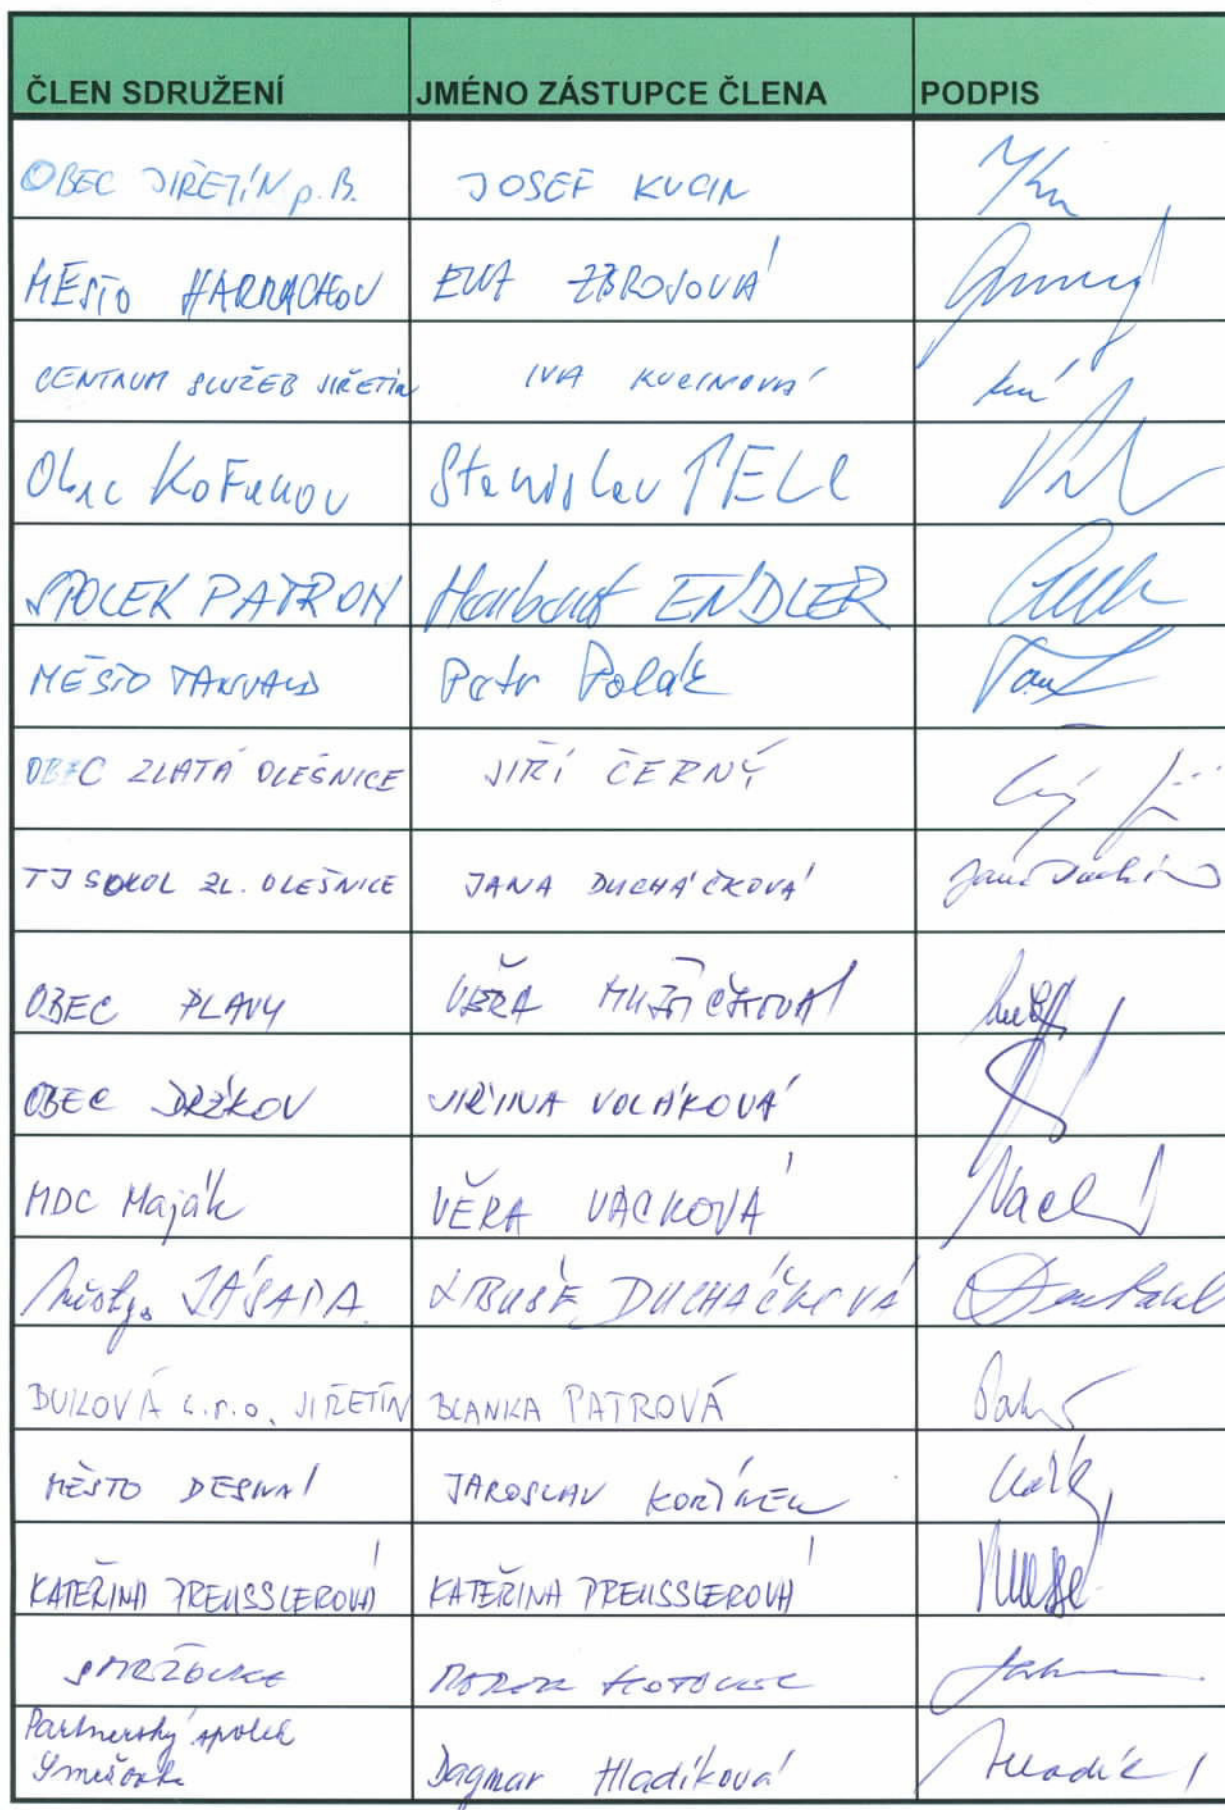 ČLEN SDRUŽENÍ JMÉNO ZÁSTUPCE ČLENA PODPIS
OBEC JIŘETÍN p. B. JOSEF KUCIN
MĚSTO HARRACHOV EVA ZBROJOVÁ
CENTRUM SLUŽEB JIŘETÍN IVA KUCINOVÁ
Obec Kořenov Stanislav PELC
SPOLEK PATRON Herbert ENDLER
MĚSTO TANVALD Petr Polák
OBEC ZLATÁ OLEŠNICE JIŘÍ ČERNÝ
TJ SOKOL ZL. OLEŠNICE JANA DUCHÁČKOVÁ
OBEC PLAVY VĚRA MUŽÍČKOVÁ
OBEC DRŽKOV JIŘINA VOLÁKOVÁ
MDC Maják VĚRA VACKOVÁ
ZÁSADA LIBUŠE DUCHÁČKOVÁ
s.r.o. JIŘETÍN BLANKA PATROVÁ
MĚSTO DESNÁ JAROSLAV KOŘÍNEK
KATEŘINA PREUSSLEROVÁ KATEŘINA PREUSSLEROVÁ
SMRŽOVKA MAREK HOTOVEC
Partnerský spolek
Smržovka Dagmar Hladíková